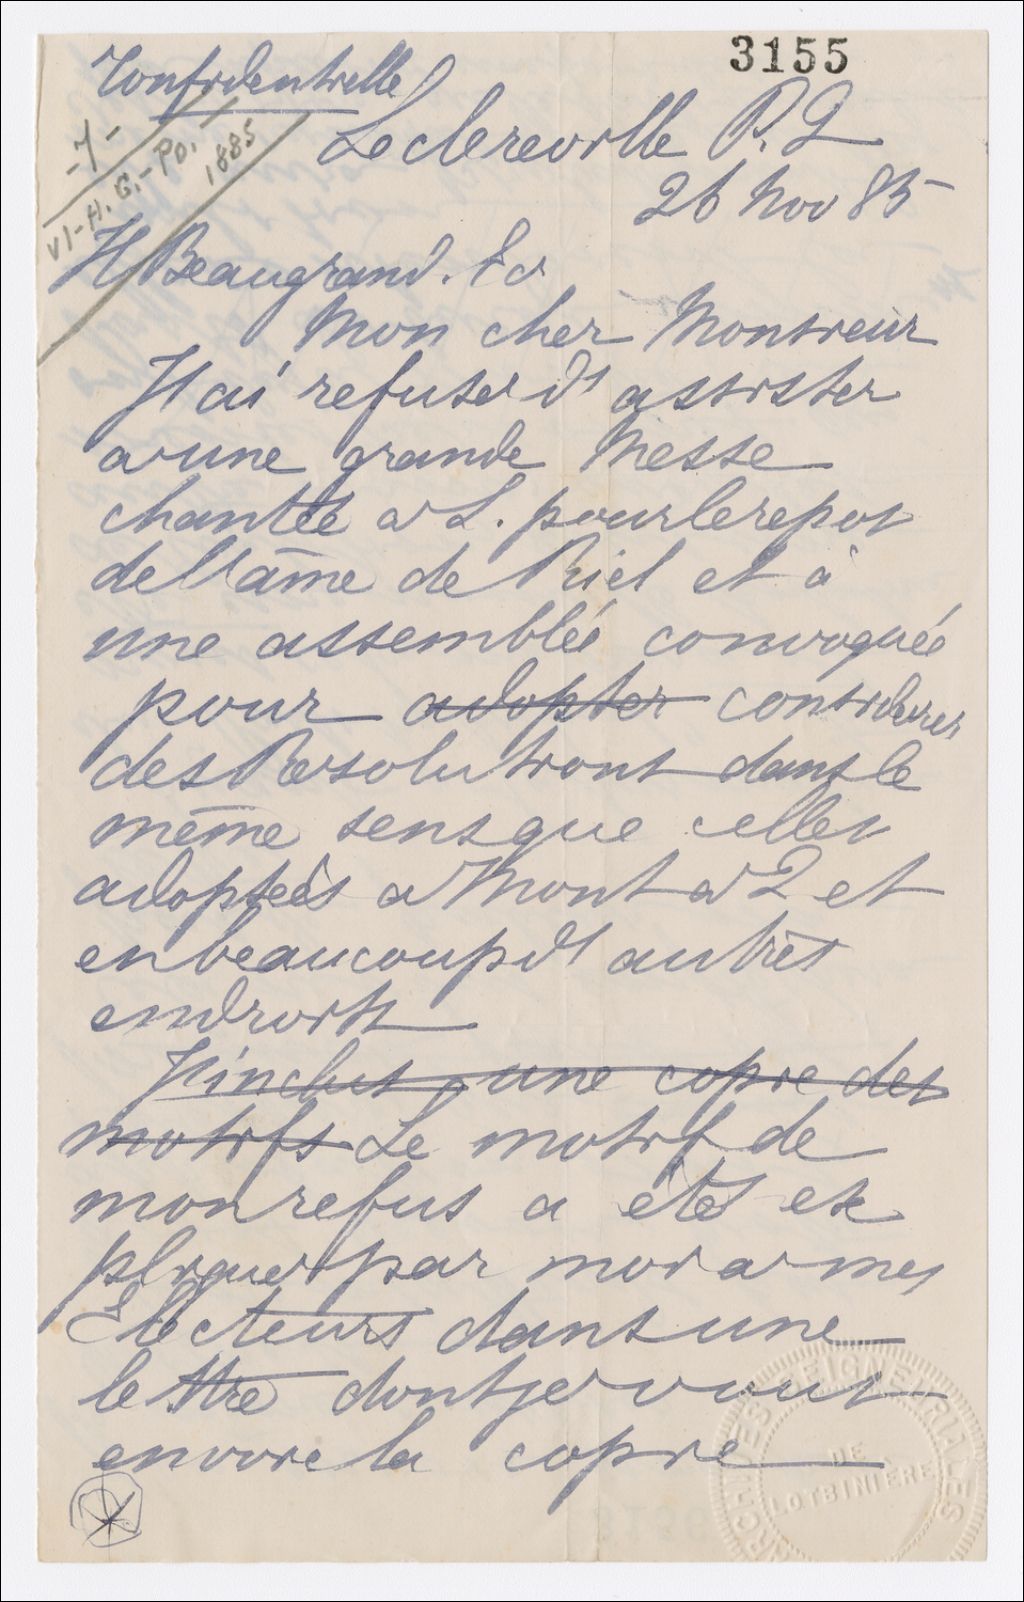 3155
Confidentielle
-7-
VI-H. G.-Po.-
1885
Leclercville P. Q
26 Nov 85
H Beaugrand. Ec
Mon cher Monsieur
J'ai refuser d'assister
a une grande Messe
chantée a L. pour le repos
de l'âme de Riel et à
une assemblée convoquée
pour adopter considerer
des Resolutions dans le
même sens que celles
adoptées a Mont a Q et
en beaucoup d'autres
endroits
J'inclus une copie des
motifs Le motif de
mon refus a étés ex
pliquer par moi a mes
Electeurs dans une
lettre dont je vous
envoie la copie
ARCHIVES SEIGNEURIALES
DE
LOTBINIERE